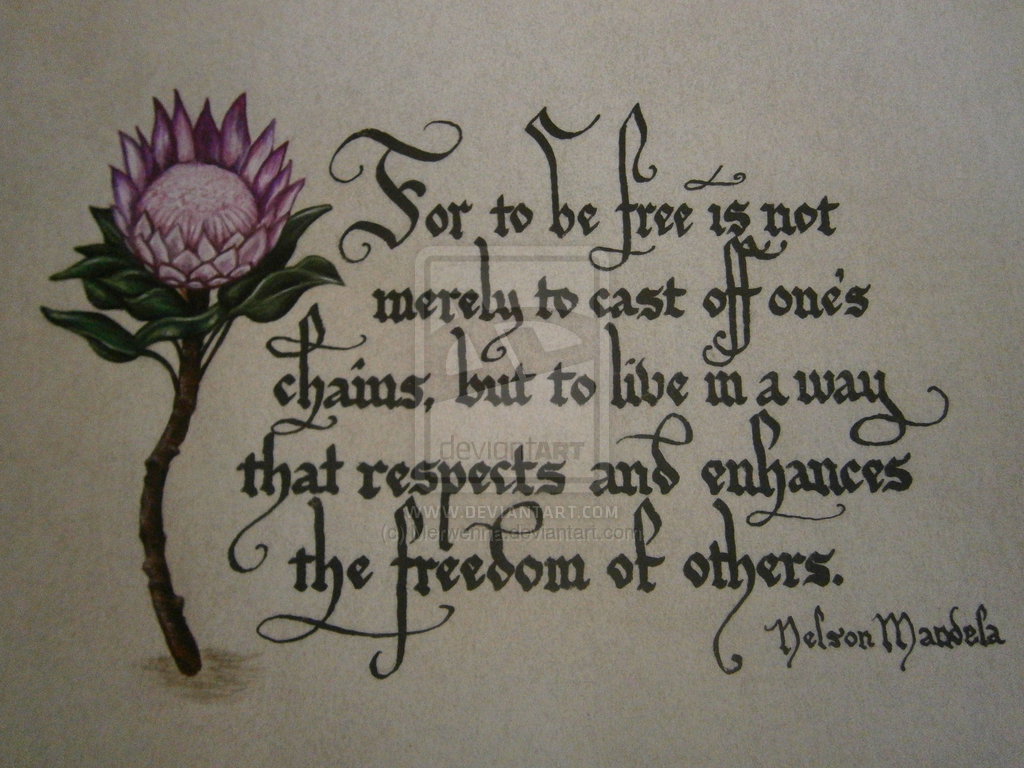 For to be free is not
merely to cast off one's
chains, but to live in a way
that respects and enhances
the freedom of others.
Nelson Mandela
deviantART
WWW.DEVIANTART.COM
(c) Merwenna.deviantart.com